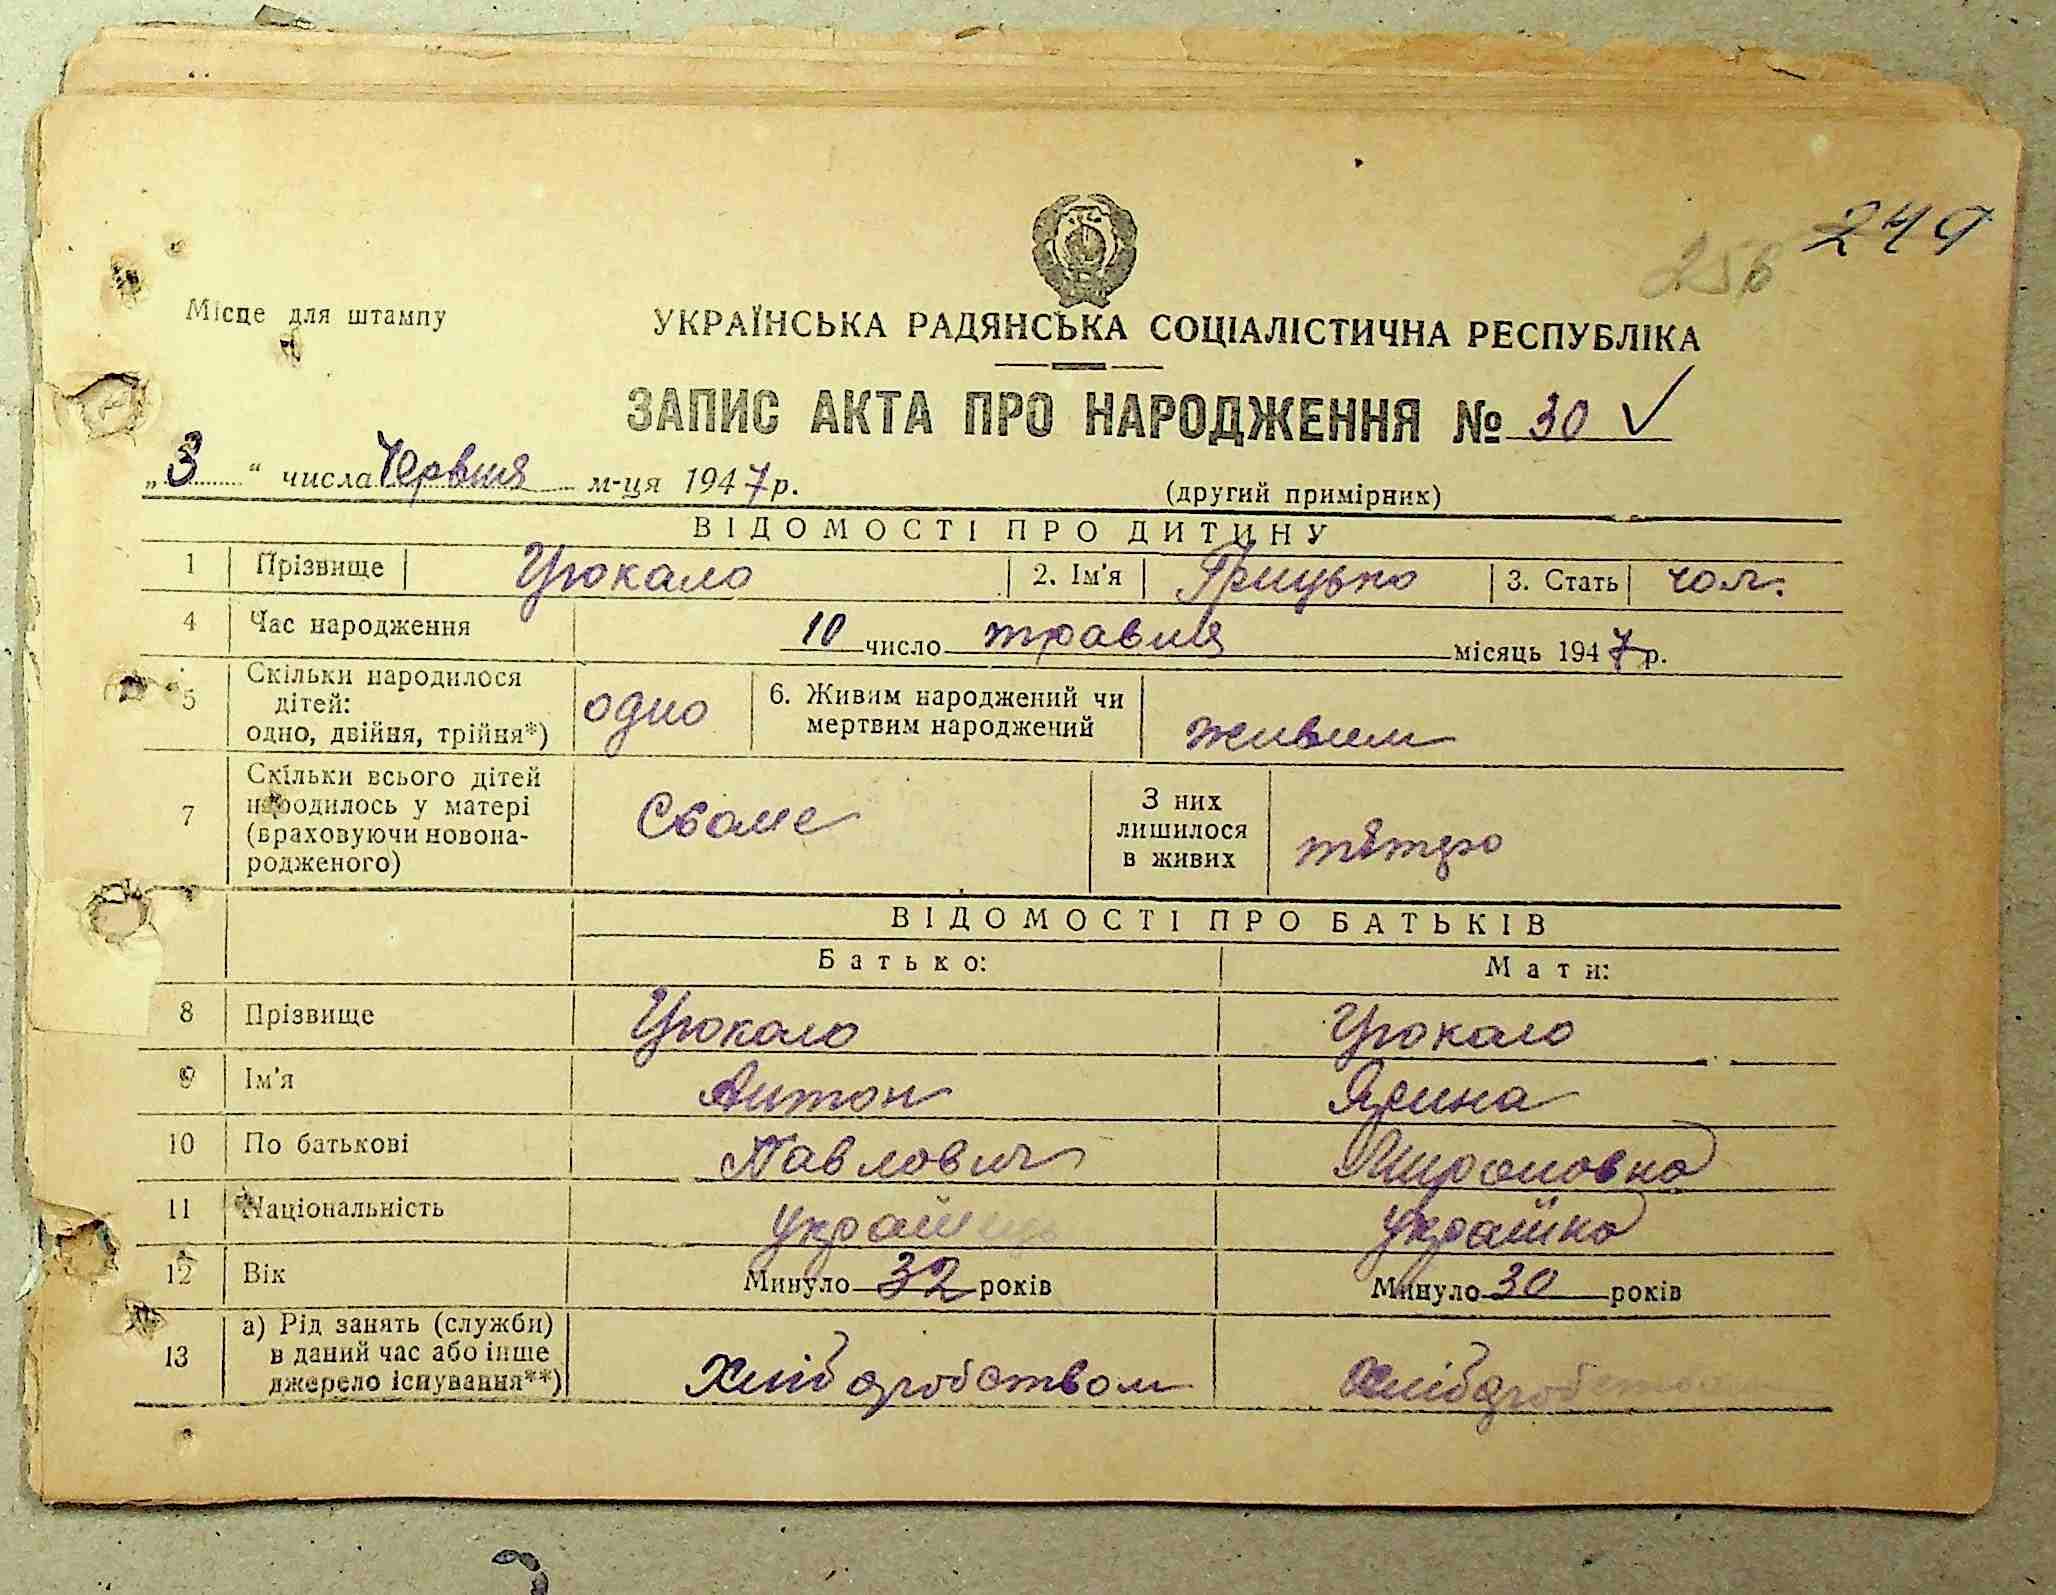 249
256
Місце для штампу
УКРАЇНСЬКА РАДЯНСЬКА СОЦІАЛІСТИЧНА РЕСПУБЛІКА
ЗАПИС АКТА ПРО НАРОДЖЕННЯ № 30 ✓
„3" числа Червня м-ця 1947 р.
(другий примірник)
ВІДОМОСТІ ПРО ДИТИНУ
1 Прізвище Цюкало 2. Ім'я Грицько 3. Стать чол.
4 Час народження 10 число травня місяць 1947 р.
5 Скільки народилося дітей: одно, двійня, трійня*) одно 6. Живим народжений чи мертвим народжений живим
7 Скільки всього дітей народилось у матері (враховуючи новонародженого) Сьоме З них лишилося в живих
ВІДОМОСТІ ПРО БАТЬКІВ
Батько: Мати:
8 Прізвище Цюкало Цюкало
9 Ім'я Антон Ярина
10 По батькові Павлович Мироновна
11 Національність українець українка
12 Вік Минуло 32 років Минуло 30 років
13 а) Рід занять (служби) в даний час або інше джерело існування**) Хліборобством Хліборобством